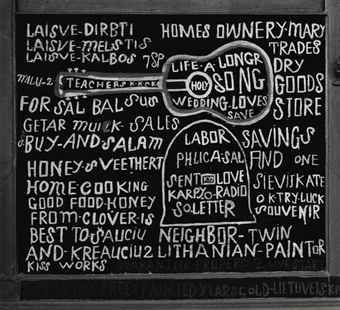 LAISVE-DIRBTI
LAISVE-MELSTIS
LAISVE-KALBOS 7SP
HOMES OWNERY-MARY
TRADES
DRY
GOODS
STORE
LIFE-A LONGR
SONG
HOLY
WEDDING-LOVES
SAVE
MALU-2
TEACHERS
FOR SAL BALSUS
GETAR MUICK-SALES
BUY-AND-SALAM
HONEY-SVEETHERT
HOME COOKING
GOOD FOOD-HONEY
FROM-CLOVER-IS
BEST TO-SALICIU
AND-KREALICIU2
KISS WORKS
LABOR
PHLICA:SAL
SENT AND LOVE
KARPYO-RADIO
SOLETTER
SAVINGS
FIND ONE
SIEVISKATE
OK-TRY-LUCK
SOUVENIR
NEIGHBOR-TWIN
LITHANIAN-PAINTOR
PAINTED
OLD-LIETUVISK